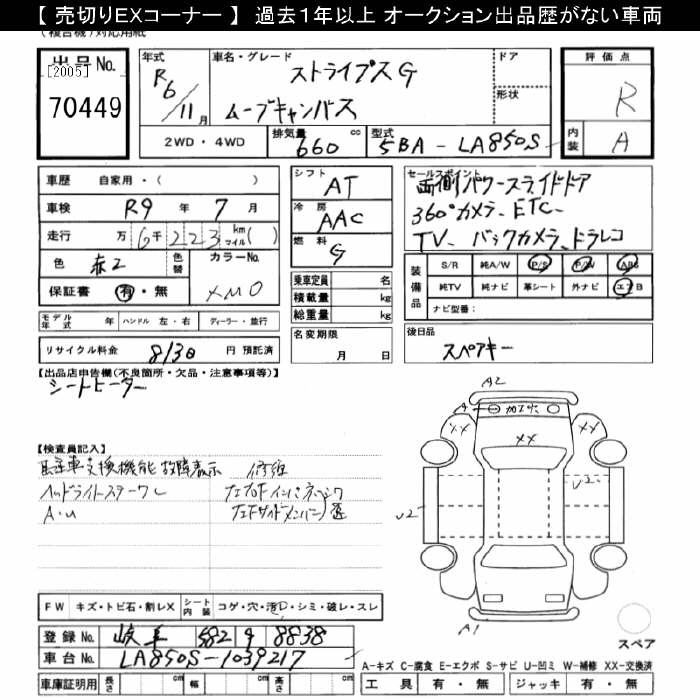 【 売切りEXコーナー 】 過去1年以上 オークション出品歴がない車両
出品No. [2005] 70449
年式 R6/11月
車名・グレード ストライプスG
ムーブキャンバス
ドア
形状
評価点 R
内装 A
2WD・4WD 排気量 660 cc 型式 5BA-LA850S
車歴 自家用・( )
車検 R9 年 7 月
走行 万 6千 223 km マイル( )
色 赤2 色替 カラーNo.
保証書 有・無 XM0
モデル年式 年 ハンドル 左・右 ディーラー・並行
リサイクル料金 8130 円 預託済
シフト AT
冷房 AAC
燃料 G
乗車定員 名
積載量 kg
総重量 kg
名変期限 月 日
セールスポイント 両側パワースライドドア
360°カメラ、ETC、
TV、バックカメラ、ドラレコ
装備品 S/R 純A/W P/S P/W ABS
純TV 純ナビ 革シート 外ナビ エアB
ナビ型番:
後日品
スペアキー
【出品店申告欄(不良箇所・欠品・注意事項等)】
シートヒーター
【検査員記入】
駐車支援機能故障表示 修復
ヘッドライトステーワレ
A・U
A2
A 加工穴
XX XX XX
U2 U2
A1
スペア
FW キズ・トビ石・割レX シート内装 コゲ・穴・汚レ・シミ・破レ・スレ
登録No. 岐阜 582 8838
車台No. LA850S-1039217
車庫証明用 長さ cm 幅 cm 高さ cm
A-キズ C-腐食 E-エクボ S-サビ U-凹ミ W-補修 XX-交換済
工具 有・無 ジャッキ 有・無